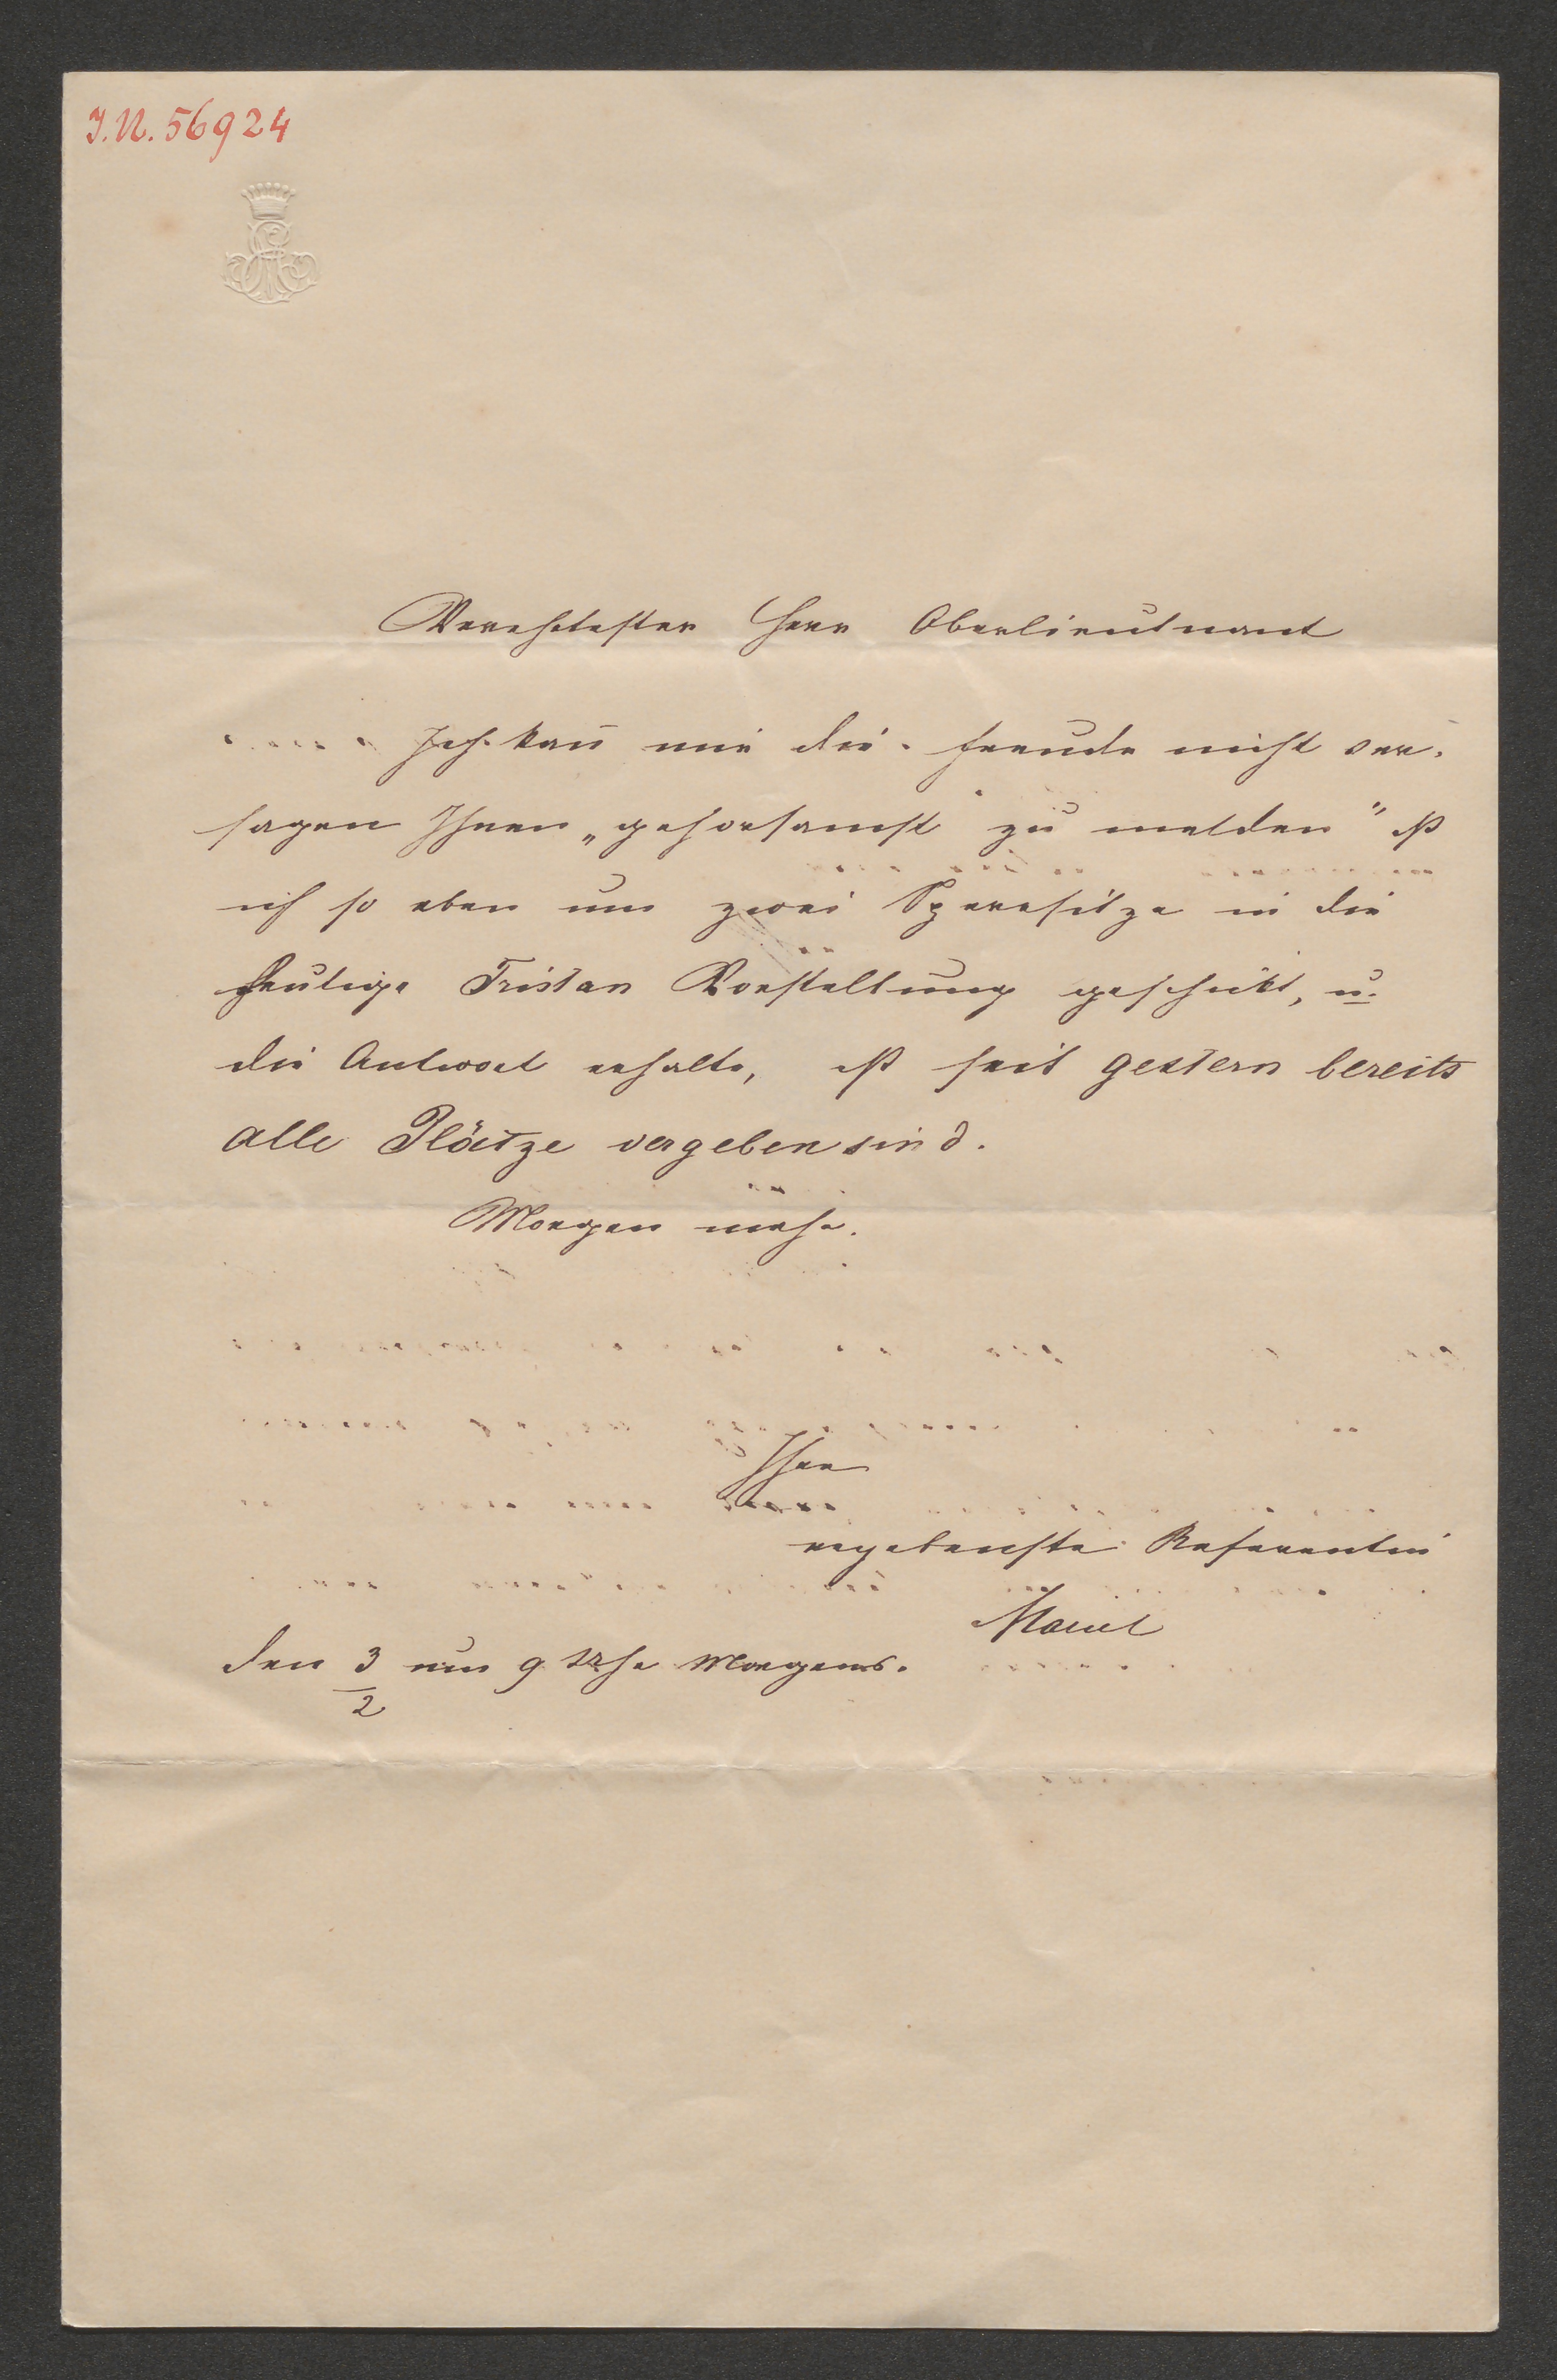 I.N. 56924
Verehrtester Herr Oberlieutnant
Ich kan̄ mir die Freude nicht ver-
sagen Ihnen „gehorsamst zu melden" dß
ich so eben um zwei Sperrsitze in die
heutige Tristan Vorstellung geschickt, u.
die Antwort erhalte, dß seit gestern bereits
alle Plätze vergeben sind.
Morgen mehr.
Ihre
ergebenste Referentin
den 3/2 um 9 Uhr Morgens.